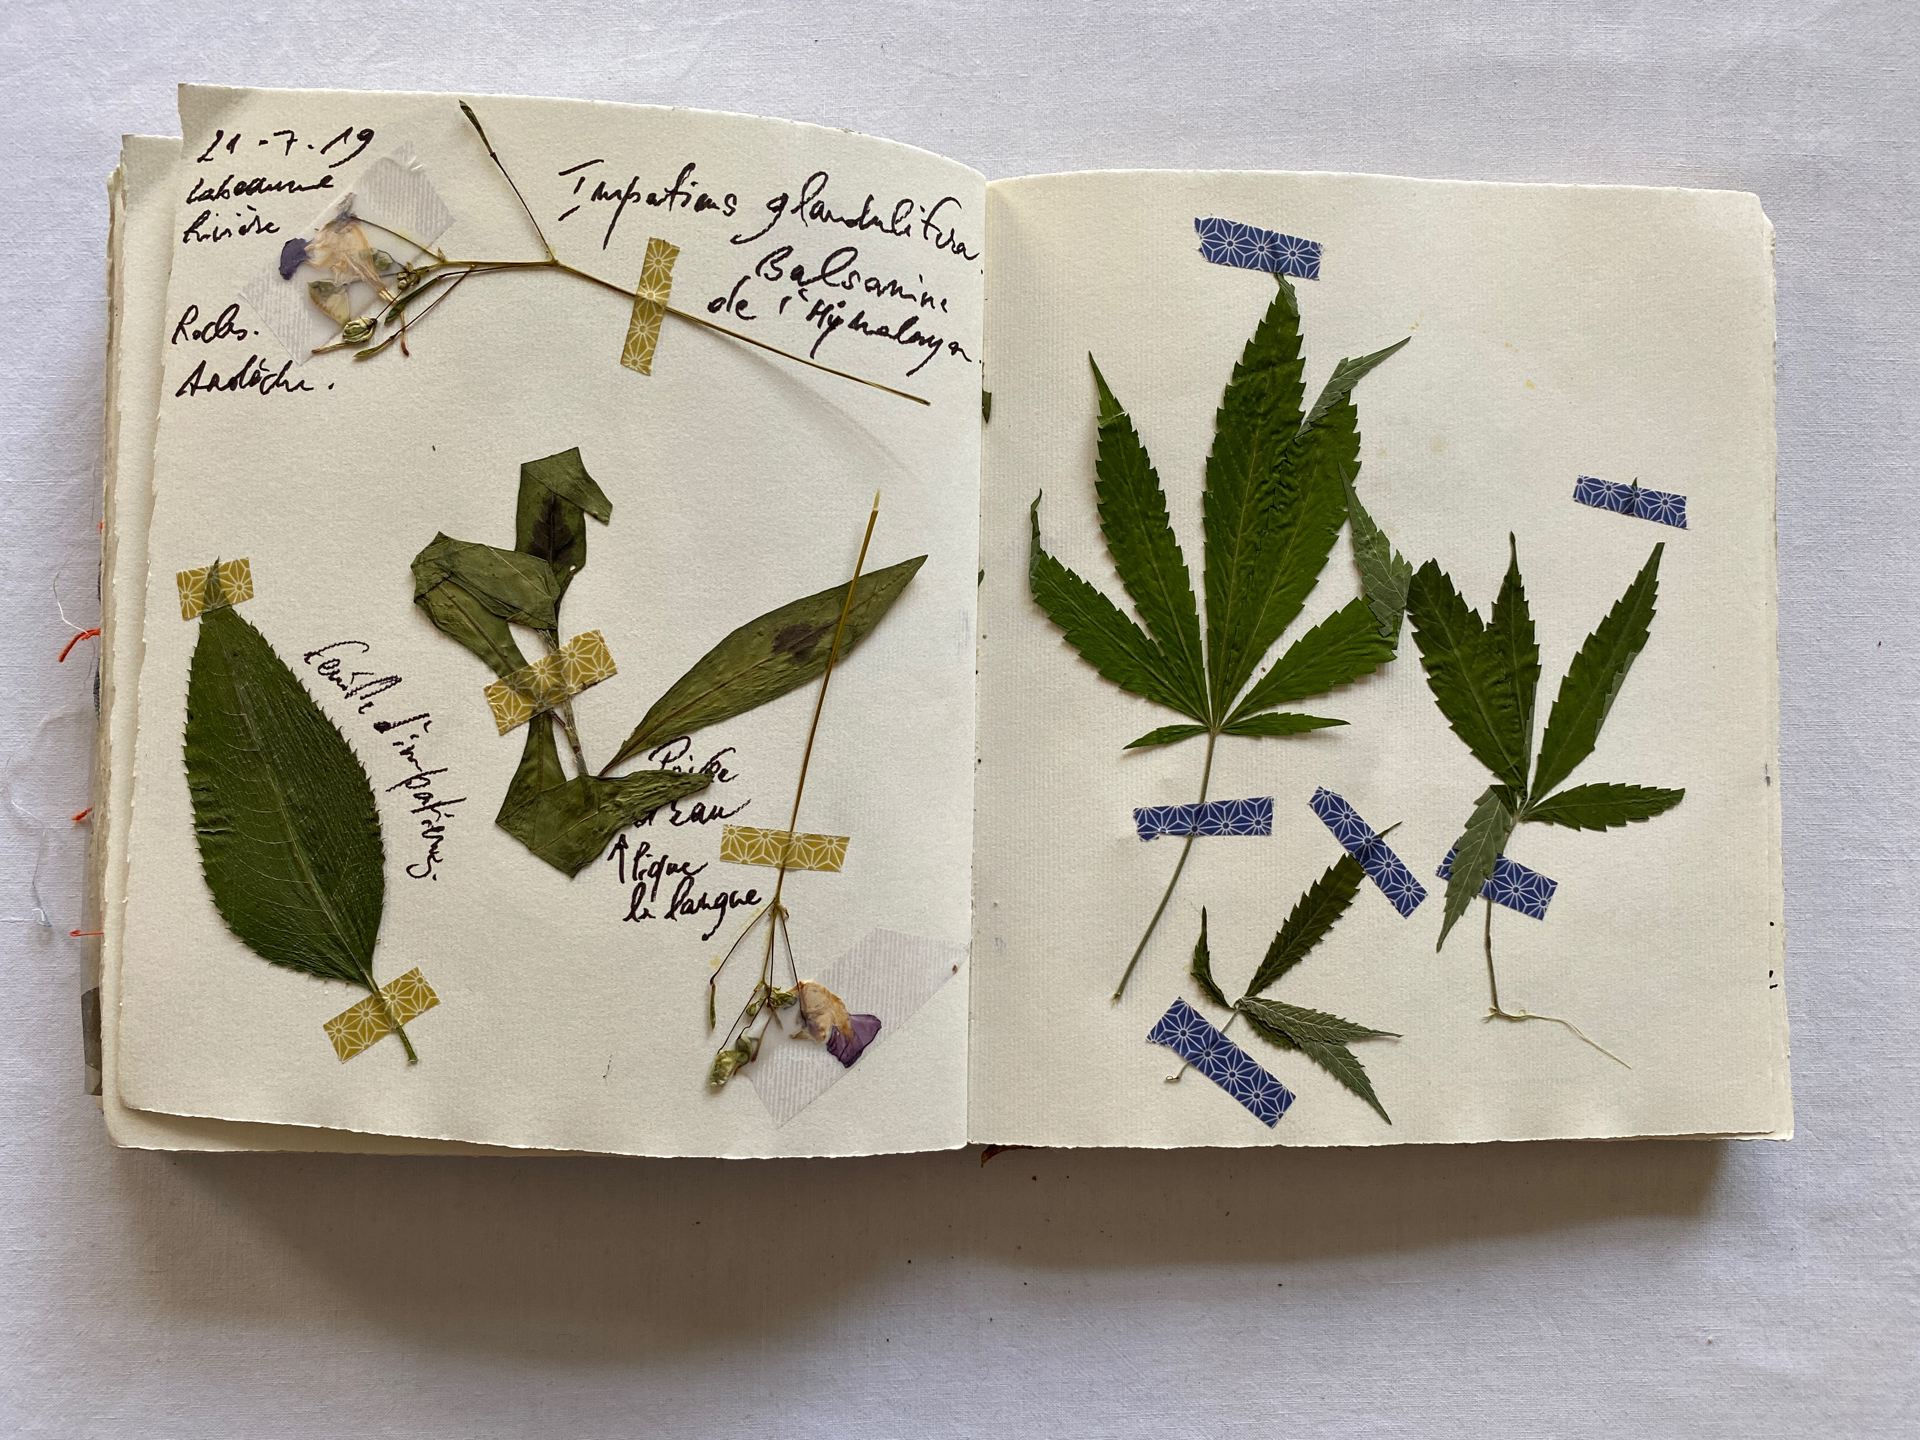 21-7.19
Labeaume
Rivière
Rocles.
Ardèche.
Impatiens glandulifera.
Balsamine
de l'Hymalaya.
feuille d'impatiens.
Poivre
d'eau
↑ pique
la langue